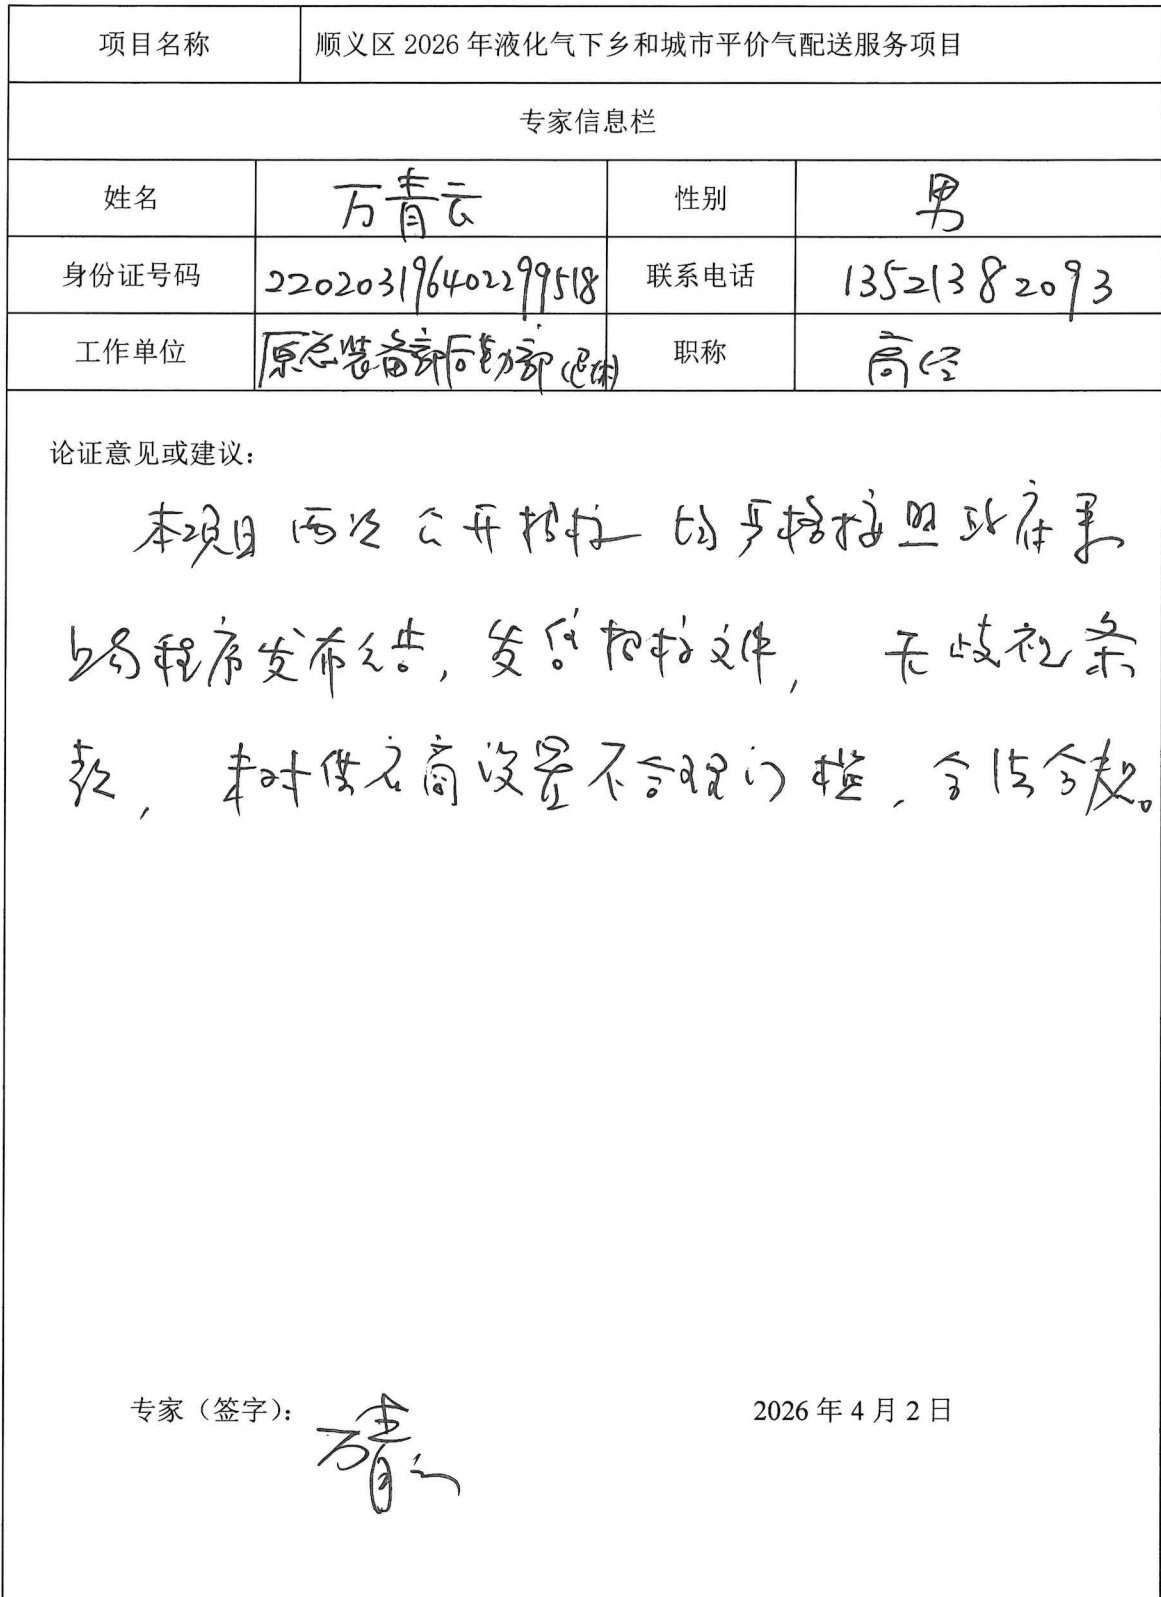 项目名称 顺义区 2026 年液化气下乡和城市平价气配送服务项目
专家信息栏
姓名 万青云 性别 男
身份证号码 220203196402299518 联系电话 13521382093
工作单位 原总装备部后勤部(退休) 职称 高经
论证意见或建议：
本项目两次公开招标均严格按照政府采
购程序发布公告，发售招标文件，无歧视条
款，未对供应商设置不合理门槛，合法合规。
专家（签字）： 万青云 2026 年 4 月 2 日